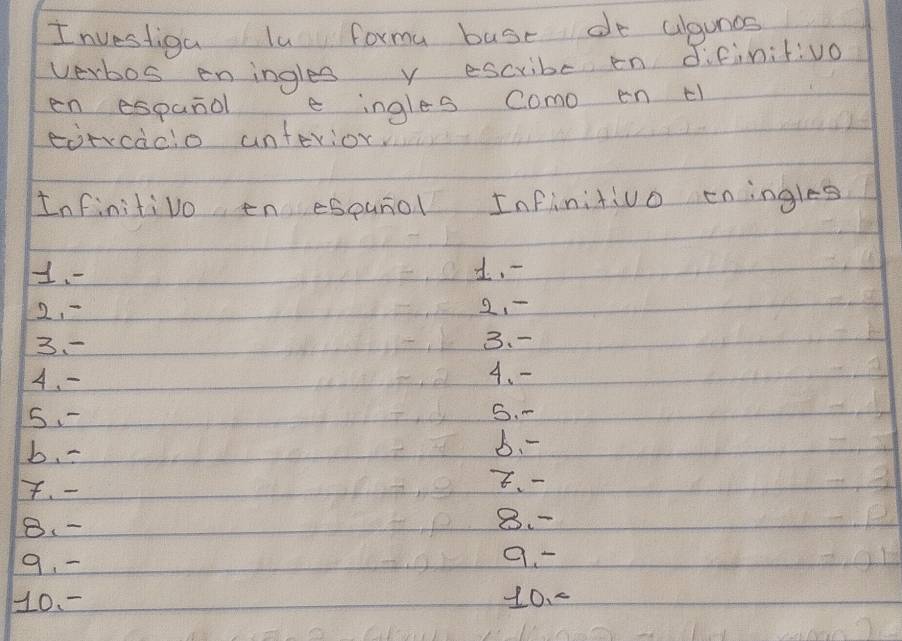 Investiga la forma base de algunos
verbos en ingles y escribe en difinitivo
en español e ingles como en el
ejercácio anterior
Infinitivo en español Infinitivo en ingles
1.- 1.-
2.- 2.-
3.- 3.-
4.- 4.-
5.- 5.-
6.- 6.-
7.- 7.-
8.- 8.-
9.- 9.-
10.- 10.-